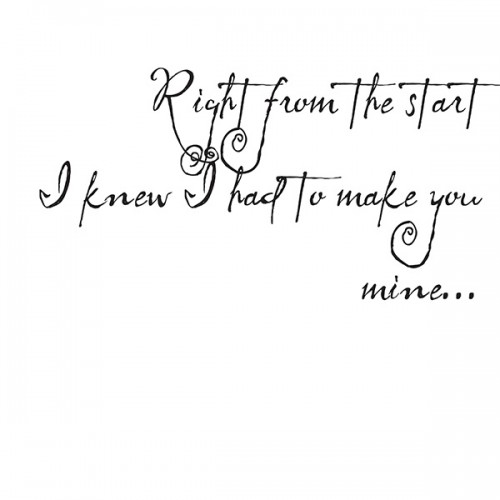 Right from the start
I knew I had to make you
mine...